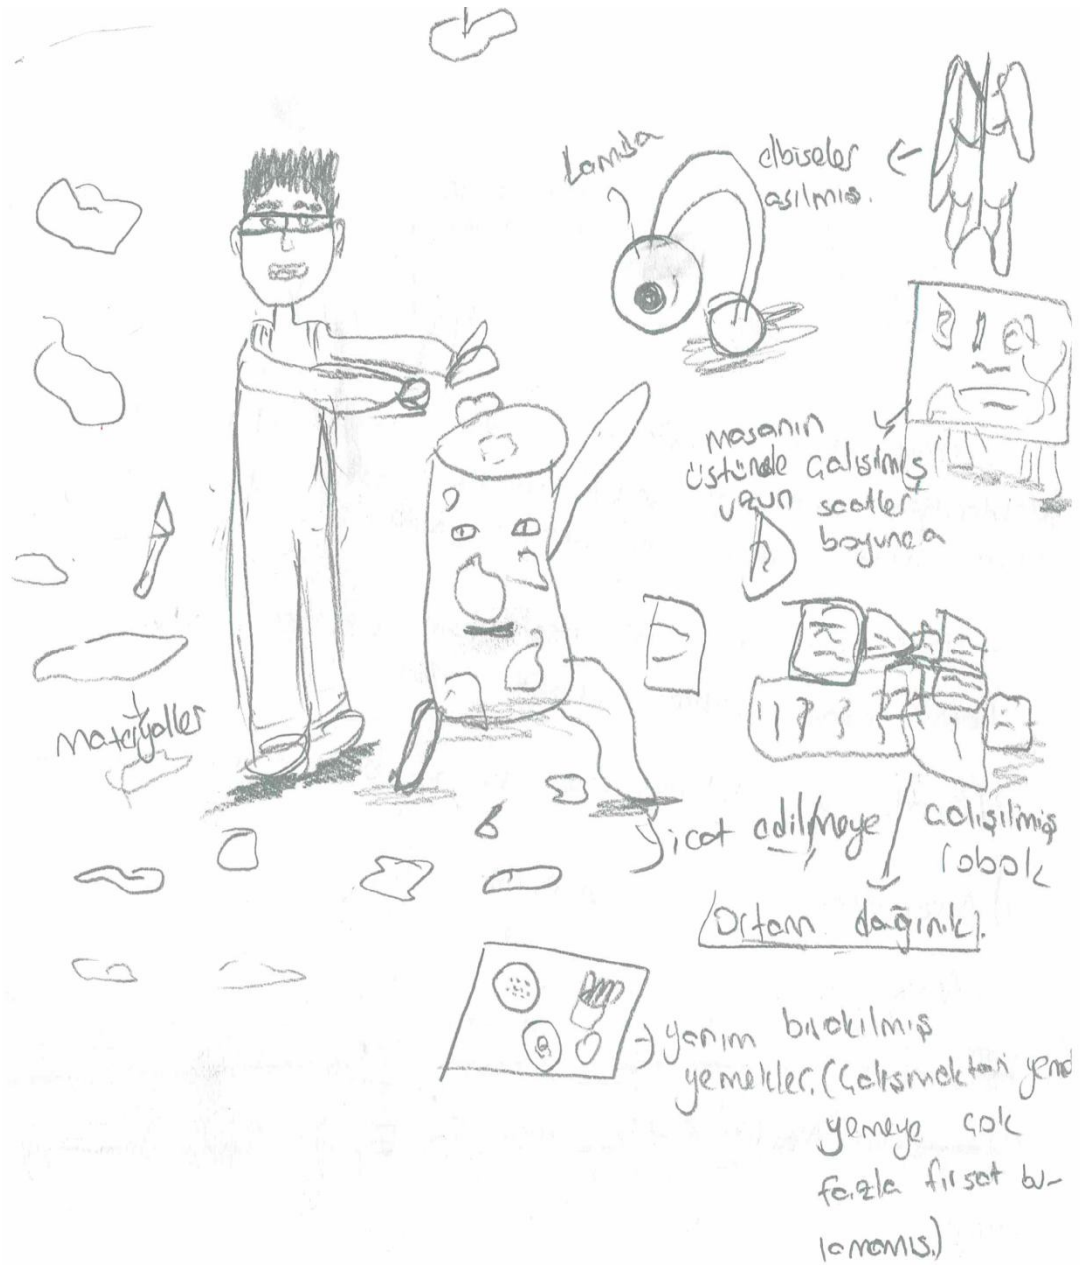 Lamba
elbiseler
asılmış.
masanın
üstünde çalışılmış
uzun saatler
boyunca
materyaller
icat edilmeye
çalışılmış
robok
Ortam dağınık.
yarım bırakılmış
yemekler. (Çalışmaktan
yemeye çok
fazla fırsat bu-
lamamış.)